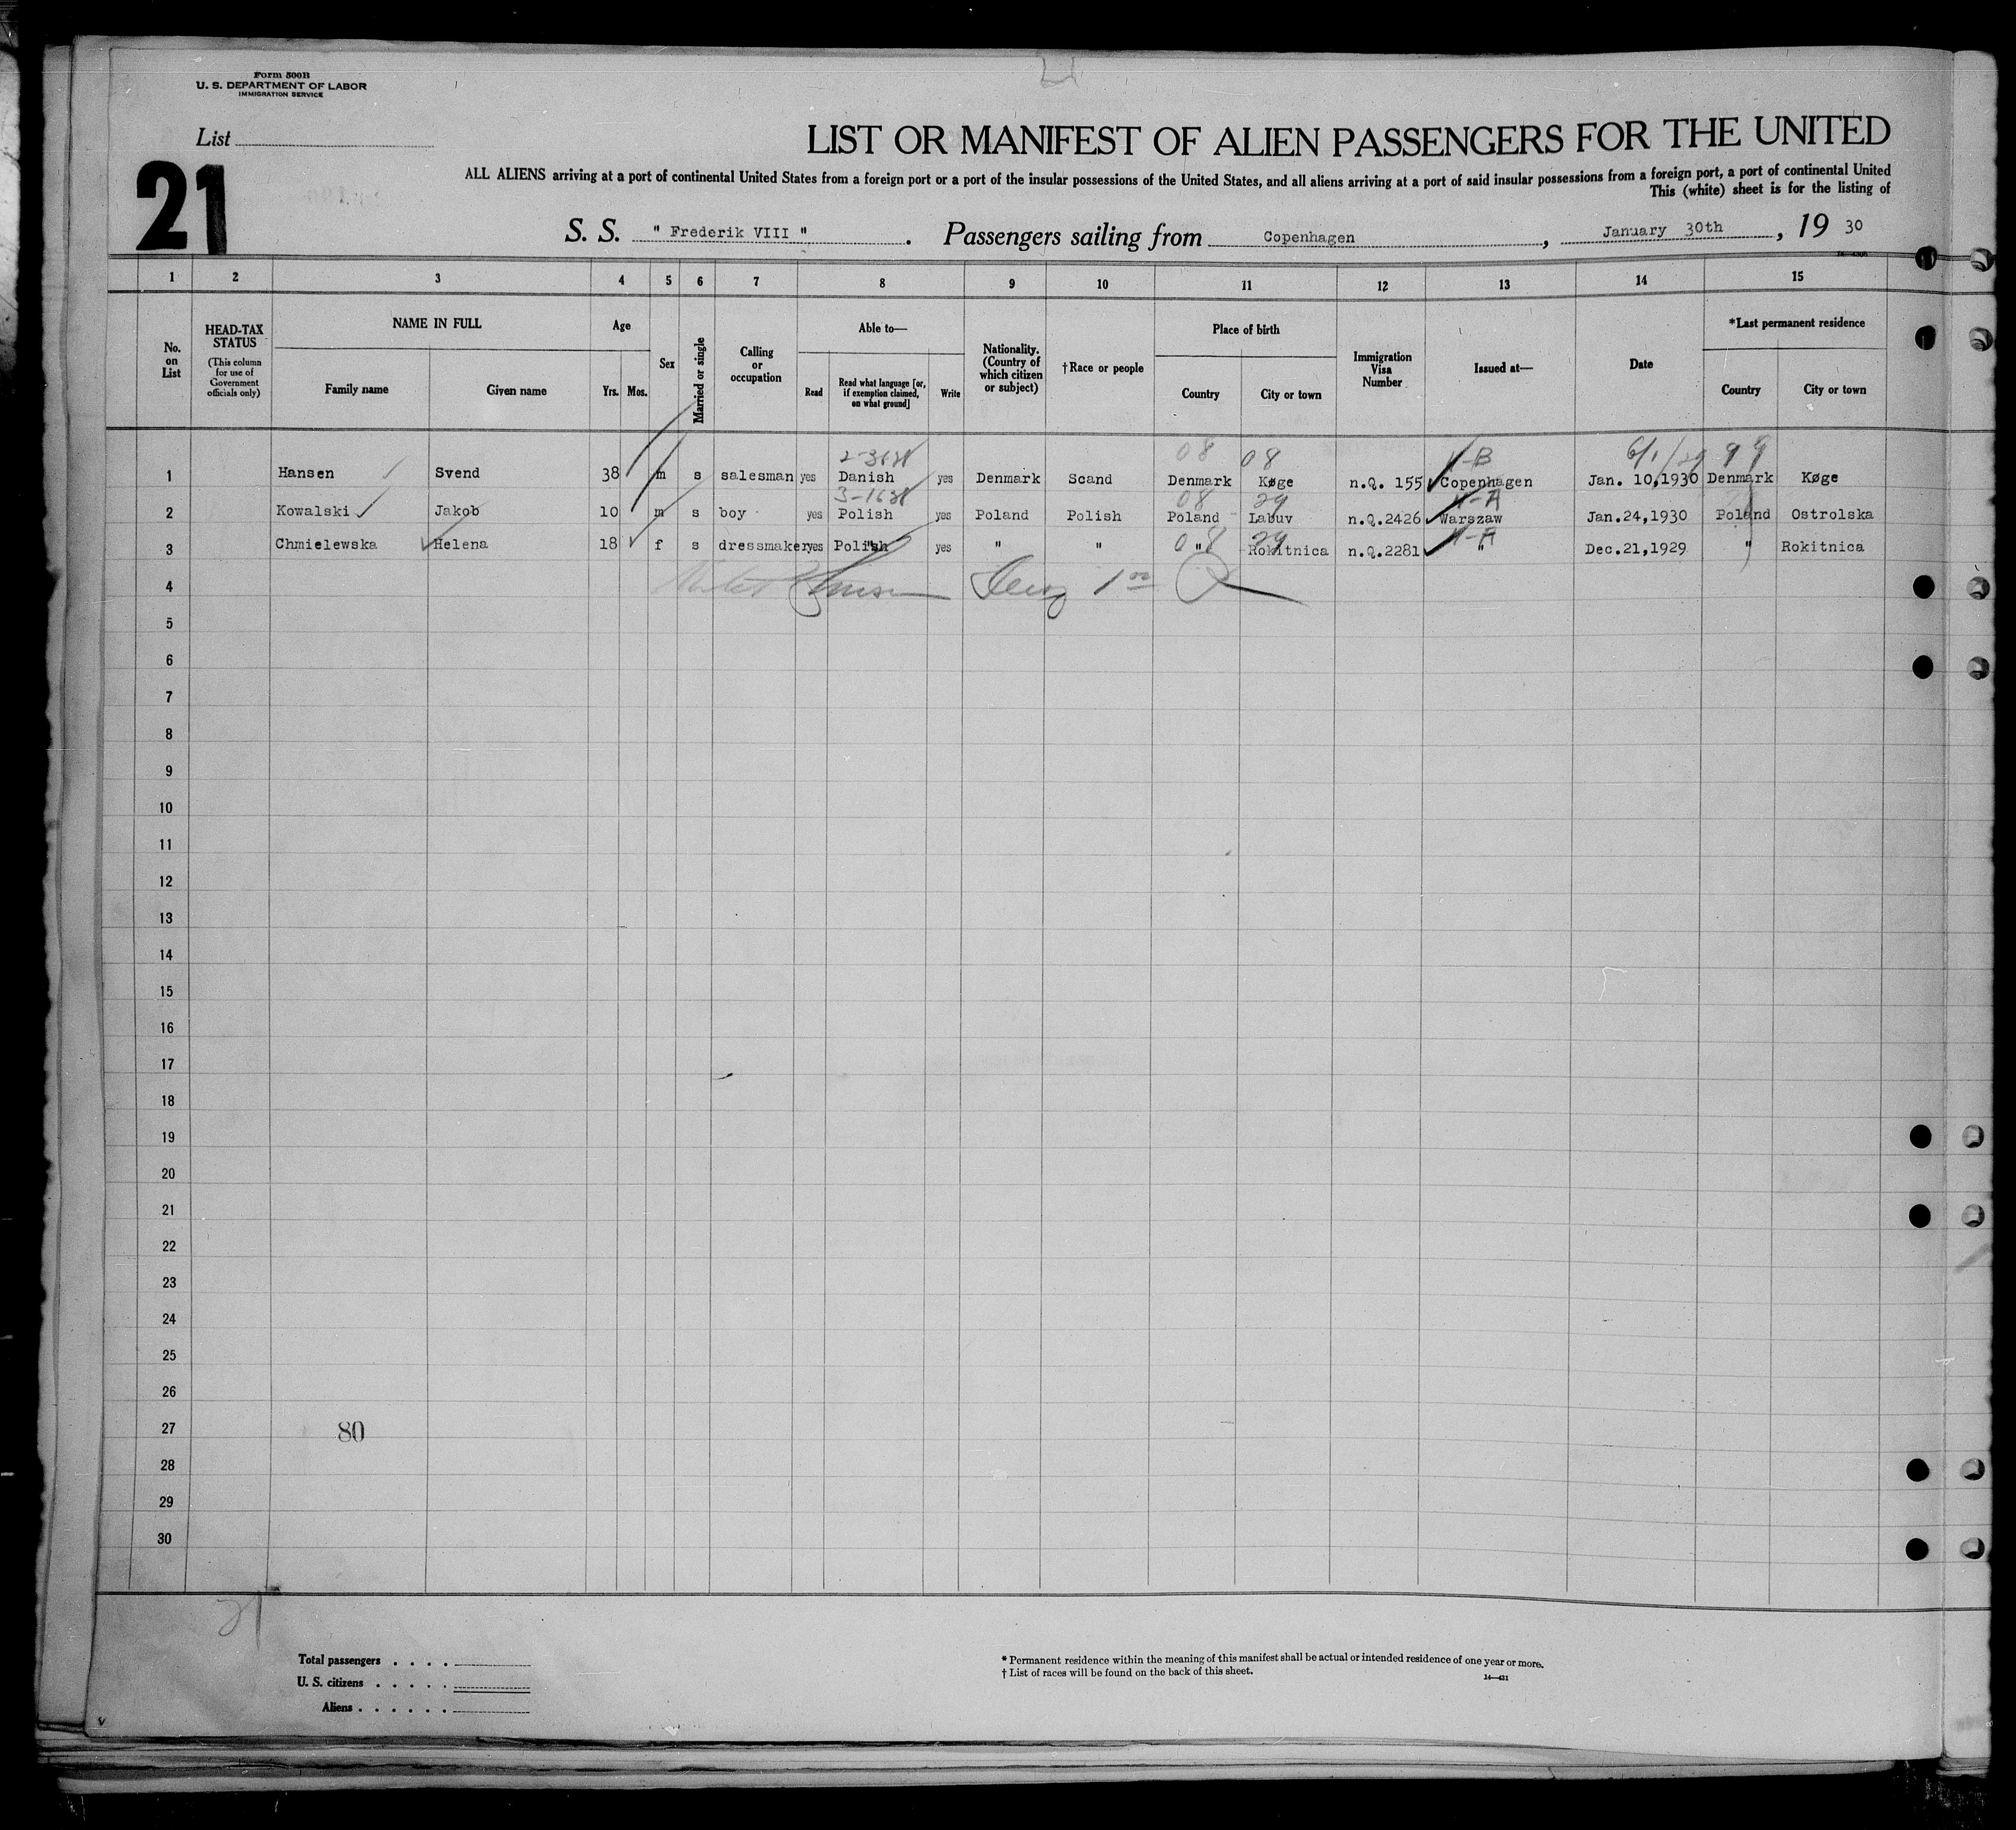 Form 500B
U. S. DEPARTMENT OF LABOR
IMMIGRATION SERVICE
List
21
LIST OR MANIFEST OF ALIEN PASSENGERS FOR THE UNITED
ALL ALIENS arriving at a port of continental United States from a foreign port or a port of the insular possessions of the United States, and all aliens arriving at a port of said insular possessions from a foreign port, a port of continental United
This (white) sheet is for the listing of
S. S. " Frederik VIII " . Passengers sailing from Copenhagen , January 30th , 19 30
1 2 3 4 5 6 7 8 9 10 11 12 13 14 15
No. on List
HEAD-TAX STATUS
(This column for use of Government officials only)
NAME IN FULL
Family name Given name
Age
Yrs. Mos.
Sex
Married or single
Calling or occupation
Able to—
Read Read what language [or, if exemption claimed, on what ground] Write
Nationality. (Country of which citizen or subject)
†Race or people
Place of birth
Country City or town
Immigration Visa Number
Issued at—
Date
*Last permanent residence
Country City or town
08 08 99
1 Hansen Svend 38 m s salesman yes Danish yes Denmark Scand Denmark Køge n.Q. 155 Copenhagen Jan. 10,1930 Denmark Køge
08 29
2 Kowalski Jakob 10 m s boy yes Polish yes Poland Polish Poland Labuv n.Q.2426 Warszaw Jan.24,1930 Poland Ostrolska
08 29
3 Chmielewska Helena 18 f s dressmaker yes Polish yes " " " Rokitnica n.Q.2281 " Dec.21,1929 " Rokitnica
4
5
6
7
8
9
10
11
12
13
14
15
16
17
18
19
20
21
22
23
24
25
26
27 80
28
29
30
21
Total passengers . . . .
U. S. citizens . . . . .
Aliens . . . . . .
* Permanent residence within the meaning of this manifest shall be actual or intended residence of one year or more.
† List of races will be found on the back of this sheet.
14—431